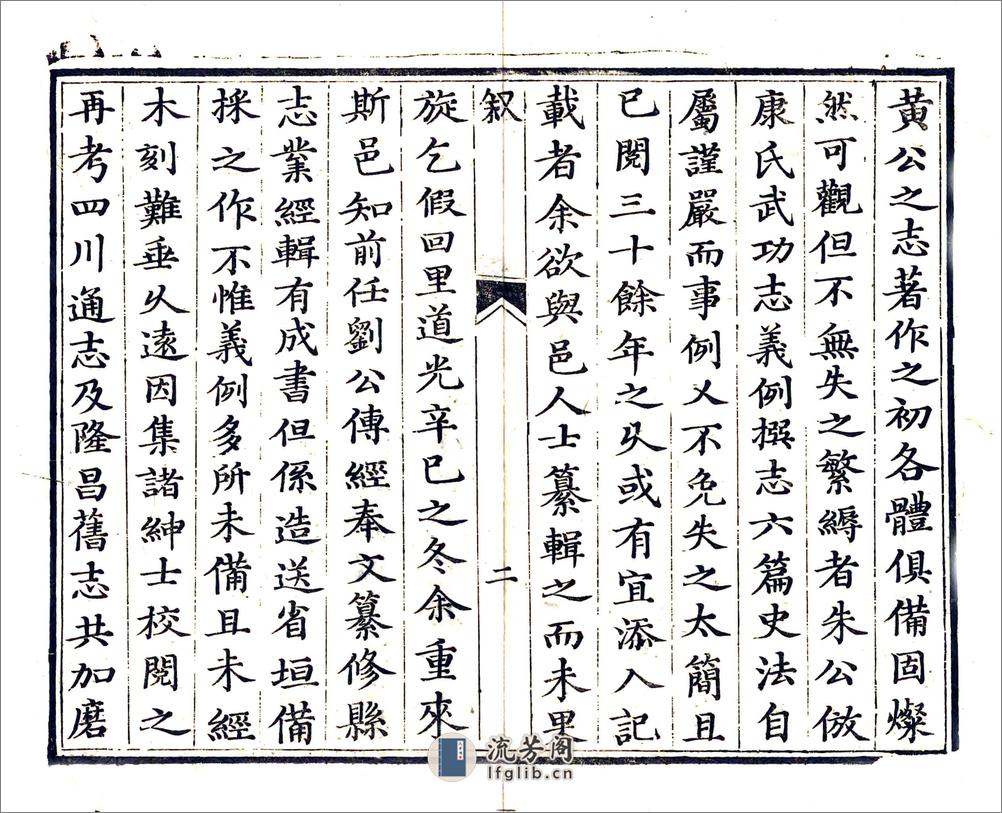 黃公之志著作之初各體俱備固燦
然可觀但不無失之繁縟者朱公倣
康氏武功志義例撰志六篇史法自
屬謹嚴而事例又不免失之太簡且
已閱三十餘年之久或有宜添入記
載者余欲與邑人士纂輯之而未果
叙
二
旋乞假回里道光辛巳之冬余重來
斯邑知前任劉公傳經奉文纂修縣
志業經輯有成書但係造送省垣備
採之作不惟義例多所未備且未經
木刻難垂久遠因集諸紳士校閱之
再考四川通志及隆昌舊志共加磨
流芳阁
lfglib.cn